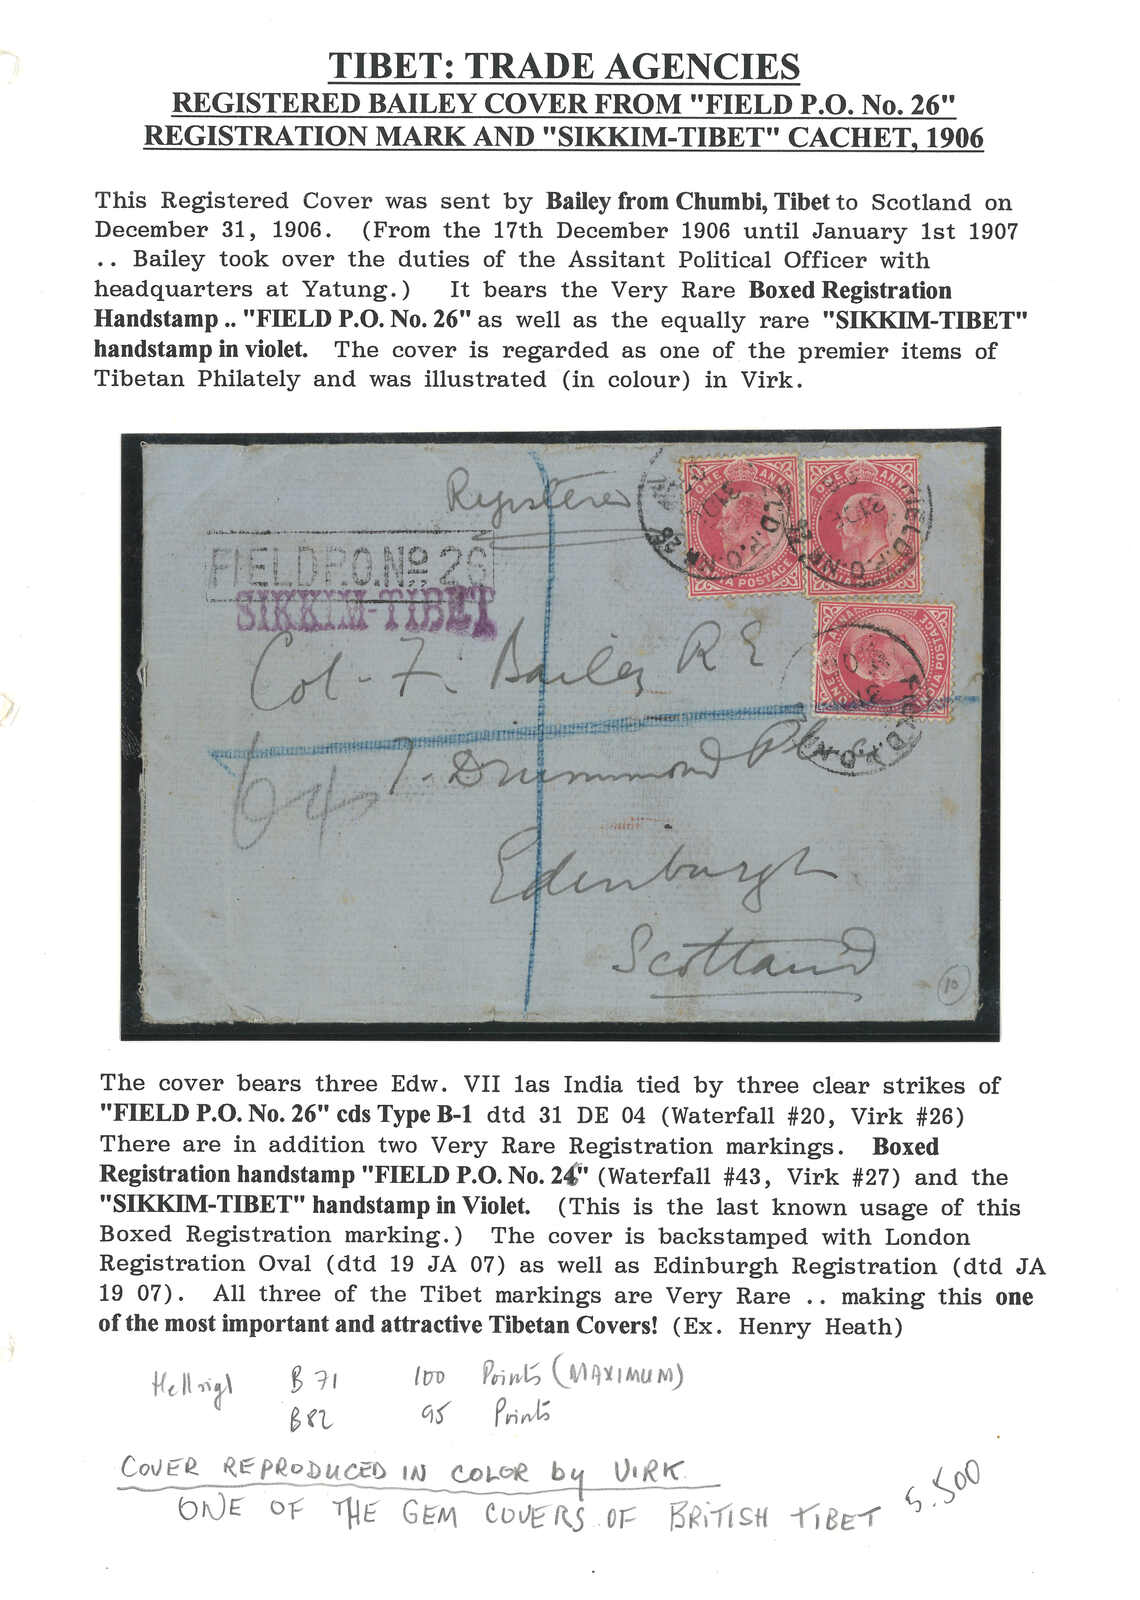 TIBET: TRADE AGENCIES
REGISTERED BAILEY COVER FROM "FIELD P.O. No. 26"
REGISTRATION MARK AND "SIKKIM-TIBET" CACHET, 1906
This Registered Cover was sent by Bailey from Chumbi, Tibet to Scotland on
December 31, 1906. (From the 17th December 1906 until January 1st 1907
.. Bailey took over the duties of the Assitant Political Officer with
headquarters at Yatung.) It bears the Very Rare Boxed Registration
Handstamp .. "FIELD P.O. No. 26" as well as the equally rare "SIKKIM-TIBET"
handstamp in violet. The cover is regarded as one of the premier items of
Tibetan Philately and was illustrated (in colour) in Virk.
Registered
ONE ANNA
INDIA POSTAGE
FIELD P.O. No. 26
SIKKIM-TIBET
Col. F. Bailey R E
7. Drummond Place
64
Edinburgh
Scotland
10
The cover bears three Edw. VII 1as India tied by three clear strikes of
"FIELD P.O. No. 26" cds Type B-1 dtd 31 DE 04 (Waterfall #20, Virk #26)
There are in addition two Very Rare Registration markings. Boxed
Registration handstamp "FIELD P.O. No. 26" (Waterfall #43, Virk #27) and the
"SIKKIM-TIBET" handstamp in Violet. (This is the last known usage of this
Boxed Registration marking.) The cover is backstamped with London
Registration Oval (dtd 19 JA 07) as well as Edinburgh Registration (dtd JA
19 07). All three of the Tibet markings are Very Rare .. making this one
of the most important and attractive Tibetan Covers! (Ex. Henry Heath)
Hellrigl B 71 100 Points (MAXIMUM)
B82 95 Points
COVER REPRODUCED IN COLOR by VIRK.
ONE OF THE GEM COVERS OF BRITISH TIBET
5.500